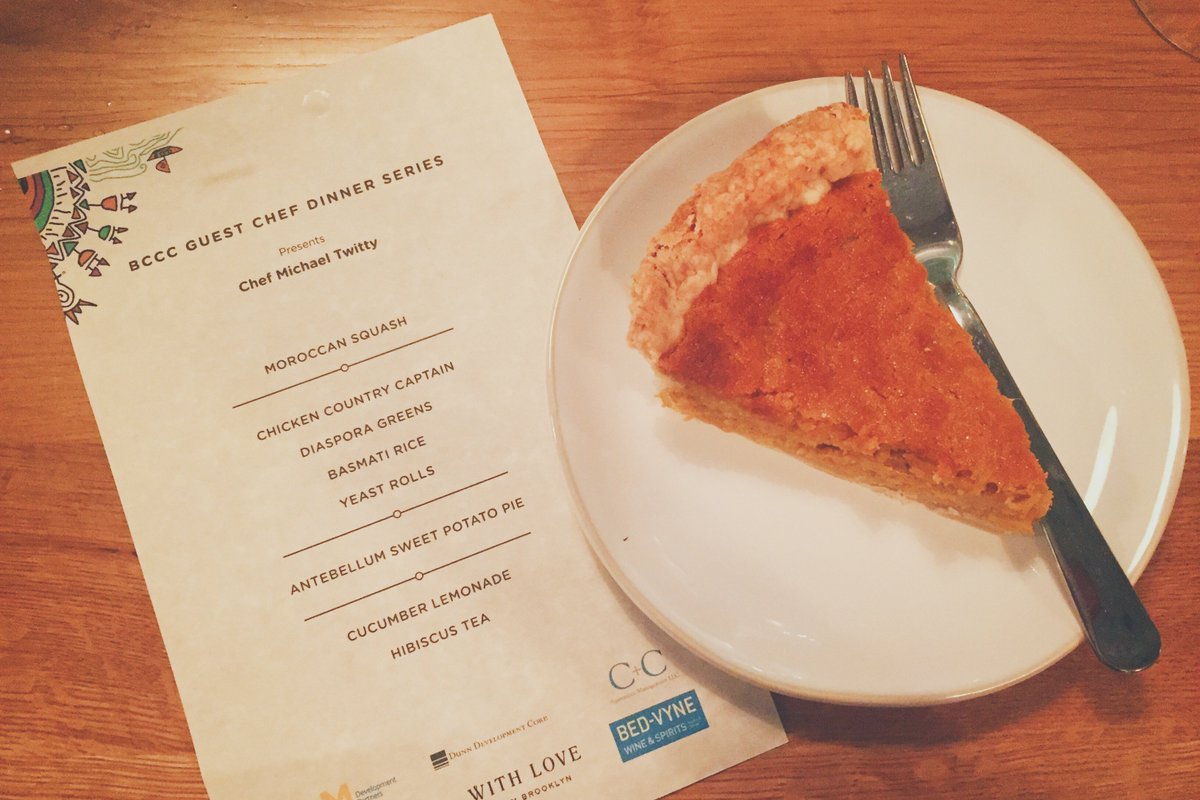 BCCC GUEST CHEF DINNER SERIES
Presents
Chef Michael Twitty
MOROCCAN SQUASH
CHICKEN COUNTRY CAPTAIN
DIASPORA GREENS
BASMATI RICE
YEAST ROLLS
ANTEBELLUM SWEET POTATO PIE
CUCUMBER LEMONADE
HIBISCUS TEA
C+C
Apartment Management LLC
BED-VYNE
WINE & SPIRITS
DUNN DEVELOPMENT CORP
WITH LOVE
BROOKLYN
M
Development
Partners